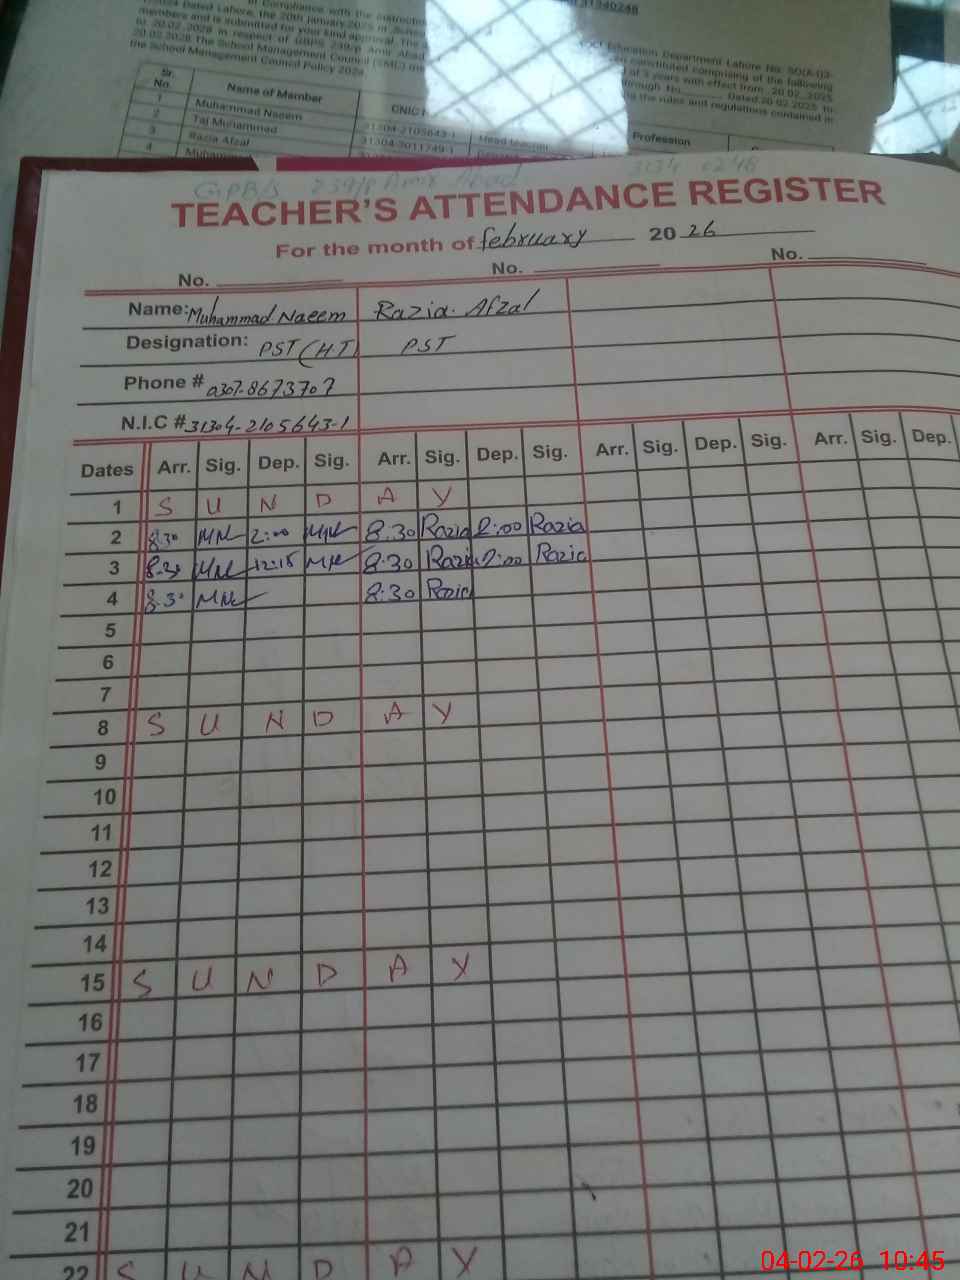 31340248
In Compliance with the
dated Lahore, the 20th January, 2025
members and is submitted for your kind approval. The
to 20.02.2028 in respect of GBPS 239/p Amir Abad
20.02.2028 The School Management Council (SMC)
the School Management Council Policy 2024
Education Department Lahore No. SO(A-I)3-
constituted comprising of the following
of 3 years with effect from 20.02.2025
through No. Dated:20.02.2025 to
the rules and regulations contained in
Sr. No. Name of Member CNIC Profession
1 Muhammad Naeem 31304-2105643-1 Head teacher
2 Taj Muhammad 31304-3011749-1
3 Razia Afzal
4 Muhammad
239/p Amir Abad 3134 0248
TEACHER'S ATTENDANCE REGISTER
For the month of february 20 26
No. No. No.
Name: Muhammad Naeem Razia Afzal
Designation: PST (H.T) PST
Phone # 0307-8673707
N.I.C # 31304-2105643-1
Dates Arr. Sig. Dep. Sig. Arr. Sig. Dep. Sig. Arr. Sig. Dep. Sig. Arr. Sig. Dep.
1 S U N D A Y
2 8.30 MN 2:00 MN 8.30 Razia 2:00 Razia
3 8.30 MN 12:15 MN 8.30 Razia 2:00 Razia
4 8.30 MN 8.30 Razia
5
6
7
8 S U N D A Y
9
10
11
12
13
14
15 S U N D A Y
16
17
18
19
20
21
22 S U N D A Y
04-02-26 10:45